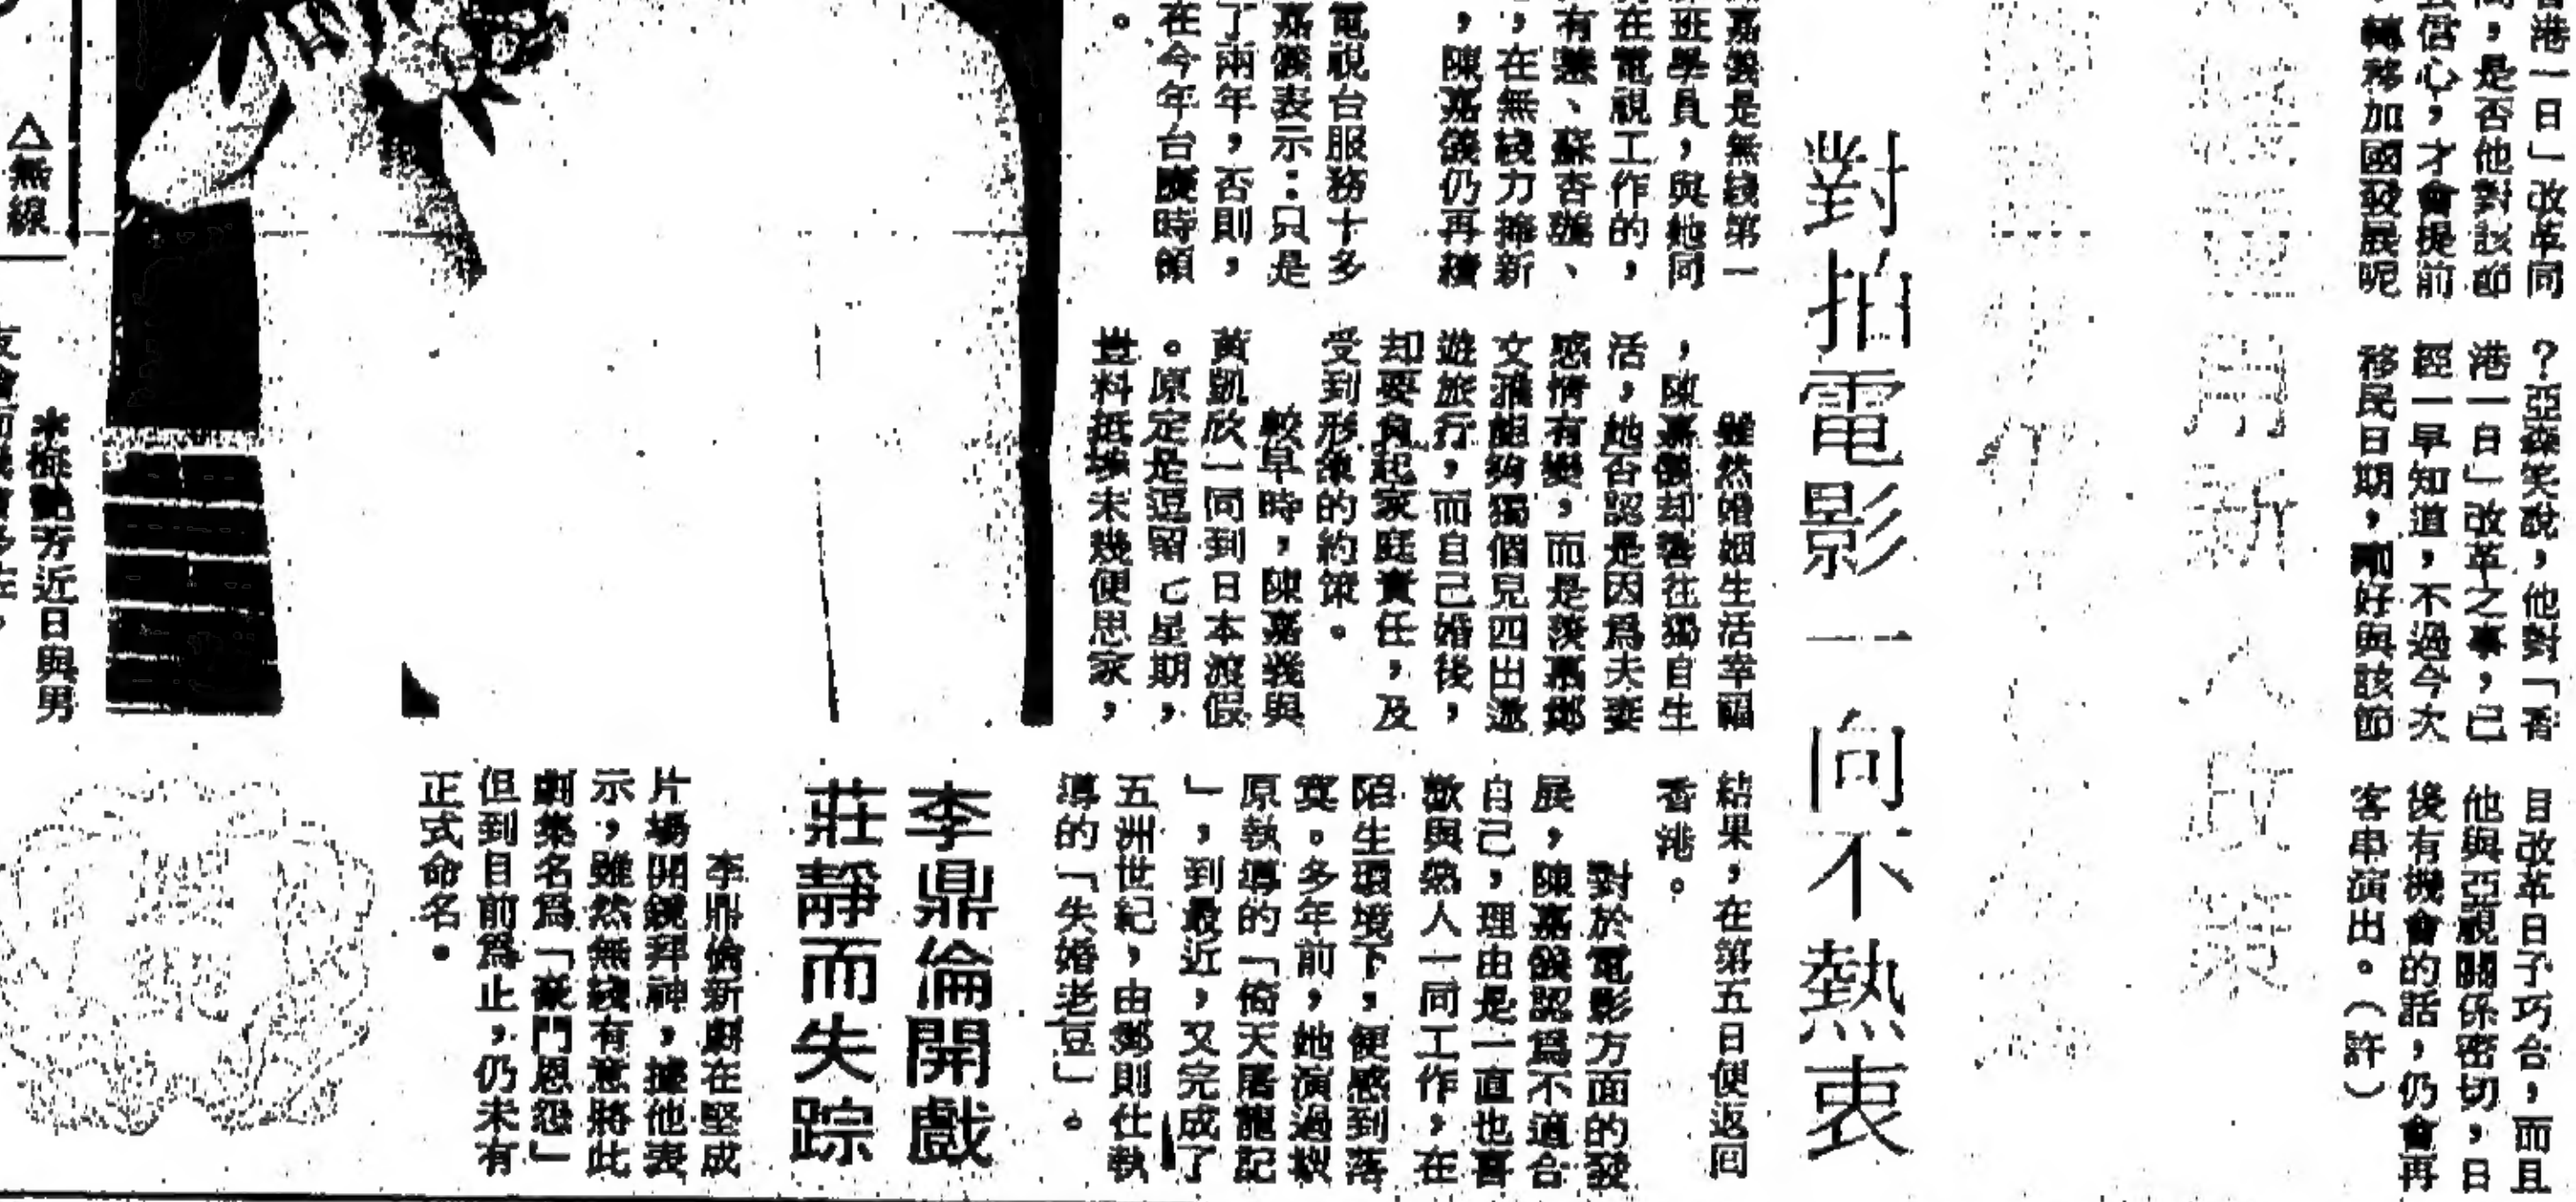 香港一日」改革同
,是否他對該節
信心,才會提前
轉移加國發展呢
?亞森笑說,他對「香
港一日」改革之事,已
經一早知道,不過今次
移民日期,剛好與該節
目改革日子巧合,而且
他與亞視關係密切,日
後有機會的話,仍會再
客串演出。(許)
用新人政策
對拍電影一向不熱衷
嘉儀是無綫第一
班學員,與她同
在電視工作的,
有、蘇杏璇、
,在無綫力捧新
,陳嘉儀仍再續
電視台服務十多
嘉儀表示:只是
了兩年,否則,
在今年台慶時領
。
雖然婚姻生活幸福
,陳嘉儀却嚮往獨自生
活,她否認是因爲夫妻
感情有變,而是羨慕鄭
文雅能夠獨個兒四出遨
遊旅行,而自己婚後,
却要負起家庭責任,及
受到形象的約策。
較早時,陳嘉義與
黃凱欣一同到日本渡假
。原定是逗留七星期,
豈料抵埗未幾便思家,
結果,在第五日便返回
香港。
對於電影方面的發
展,陳嘉儀認爲不適合
自己,理由是一直也喜
歡與熟人一同工作,在
陌生環境下,便感到落
寞。多年前,她演過楚
原執導的「倚天屠龍記
」,到最近,又完成了
五洲世紀,由鄭則仕執
導的「失婚老豆」。
李鼎倫開戲
莊靜而失踪
李鼎倫新劇在堅成
片場開鏡拜神,據他表
示,雖然無綫有意將此
劇集名爲「豪門恩怨」
但到目前爲止,仍未有
正式命名。
△無線
梅艷芳近日與男